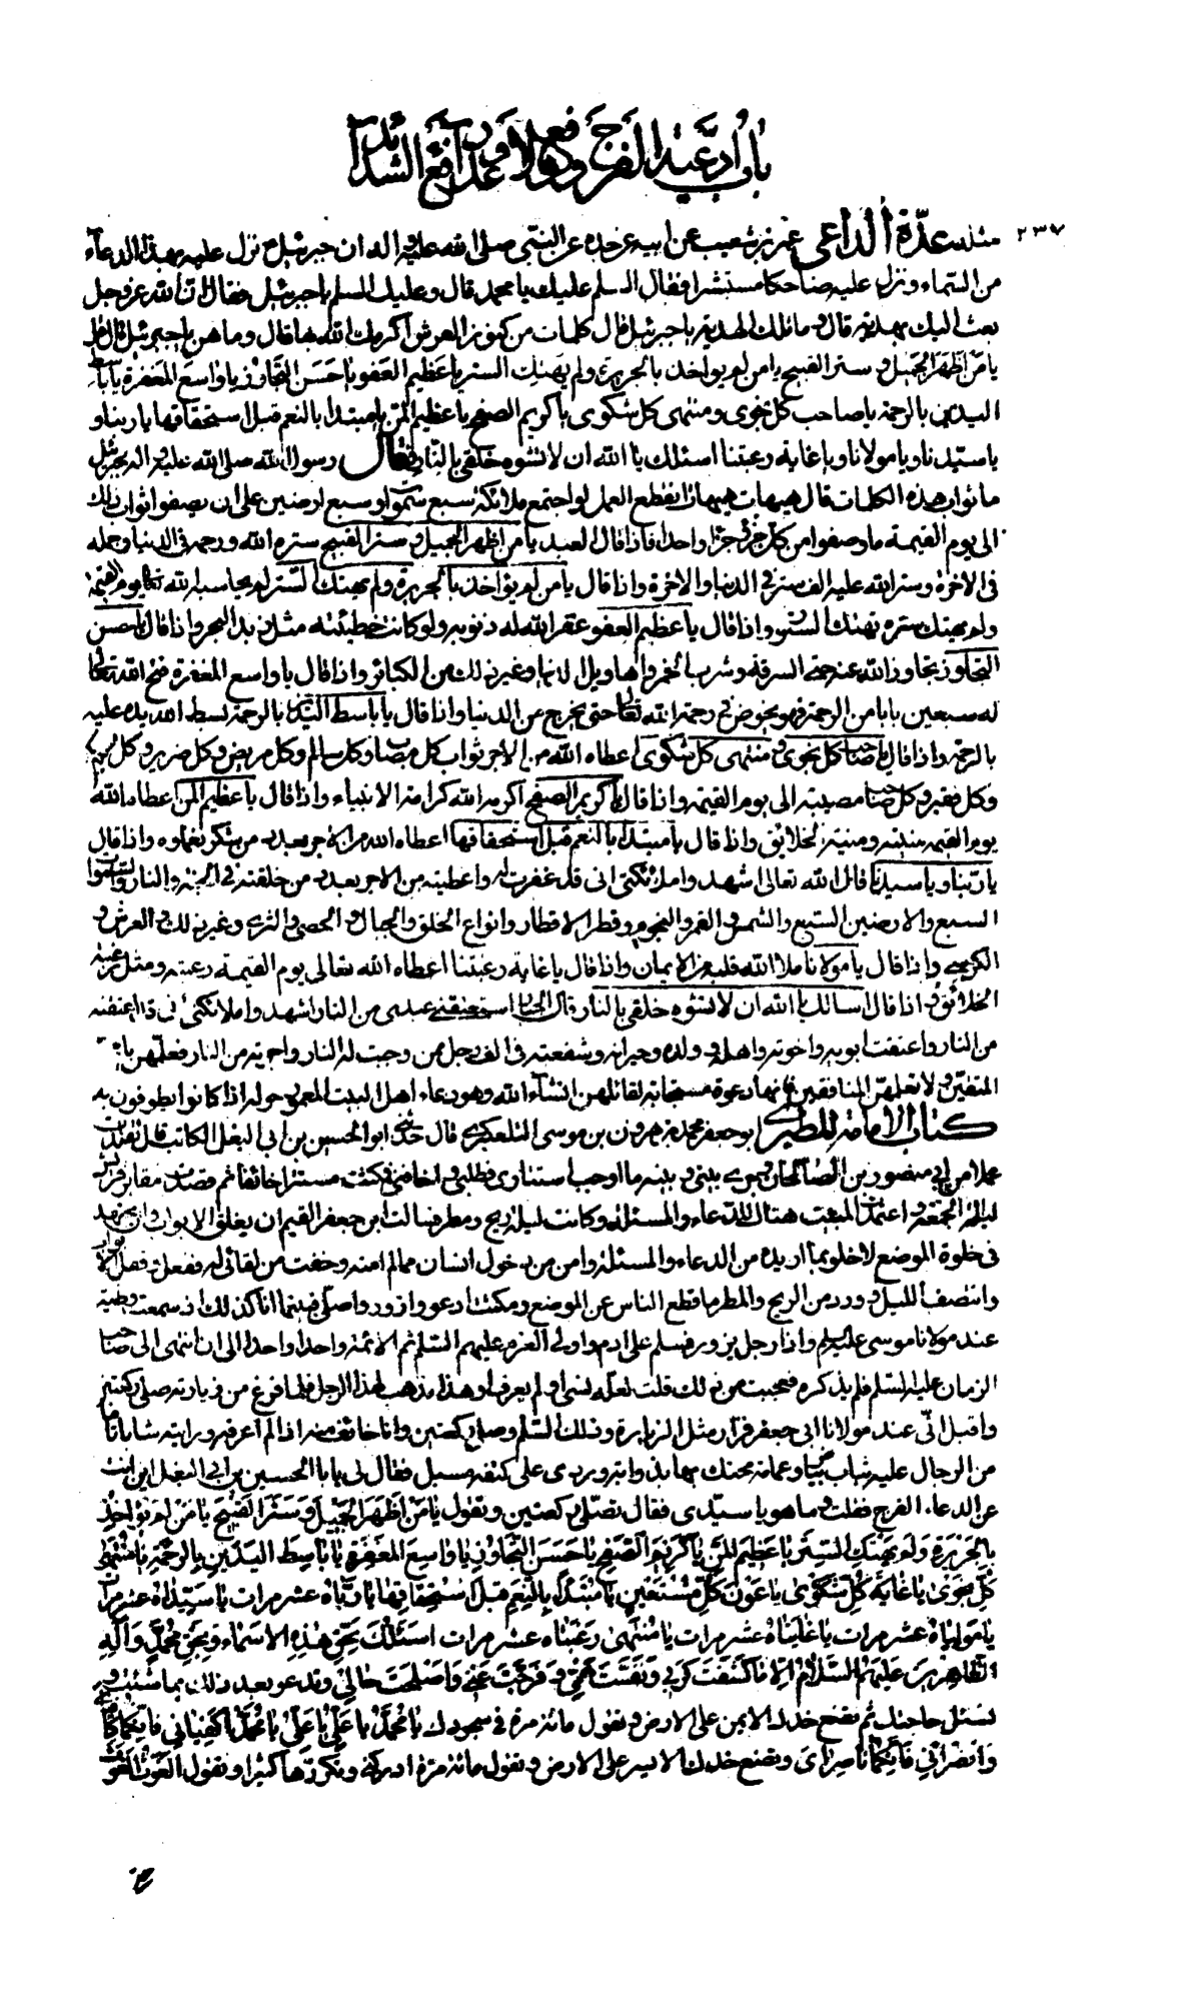 باب أدعية الفرج ودفع الأعداء ورفع الشدائد
٢٣٧
مثله عدّة الداعي عمرو بن شعيب عن ابيه عن جده عن النبي صلى الله عليه واله ان جبرئيل نزل عليه بهذا الدعاء
من السماء ونزل عليه ضاحكا مستبشرا فقال السلم عليك يا محمد قال وعليك السلم يا جبرئيل فقال ان الله عز وجل
بعث اليك بهدية قال وما تلك الهدية يا جبرئيل قال كلمات من كنوز العرش اكرمك الله بها قال وما هن يا جبرئيل قال قل
يا مَن اَظهَرَ الجَميل وستر القبيح يا من لم يواخذ بالجريرة ولم يهتك الستر يا عَظيم العَفو يا حَسَن التجاوُز يا واسِع المَغفِرة يا باسط
اليدين بالرحمة يا صاحب كل نجوى ومنتهى كل شكوى يا كريم الصفح يا عظيم المن يا مبتدئا بالنعم قبل استحقاقها يا ربنا و
يا سيدنا ويا مولانا ويا غاية رغبتنا اسئلك يا الله ان لا تشوه خلقي بالنار فقال رسول الله صلى الله عليه واله يا جبرئيل
ما ثواب هذه الكلمات قال هيهات هيهات انقطع العمل لو اجتمع ملائكة سبع سموات وسبع ارضين على ان يصفوا ثواب ذلك
الى يوم القيمة ما وصفوا من كل جزء جزءا واحدا فاذا قال العبد يا من اظهر الجميل وستر القبيح ستره الله ورحمه في الدنيا وجمله
في الاخرة وستر الله عليه الف ستر في الدنيا والاخرة واذا قال يا من لم يواخذ بالجريرة ولم يهتك الستر لم يحاسبه الله تعالى يوم القيمة
ولم يهتك ستره يوم تهتك الستور واذا قال يا عظيم العفو غفر الله له ذنوبه ولو كانت خطيئته مثل زبد البحر واذا قال يا حسن
التجاوز تجاوز الله عنه حتى السرقة وشرب الخمر واهاويل الدنيا وغير ذلك من الكبائر واذا قال يا واسع المغفرة فتح الله تعالى
له سبعين بابا من الرحمة فهو يخوض في رحمة الله تعالى حتى يخرج من الدنيا واذا قال يا باسط اليدين بالرحمة بسط الله يده عليه
بالرحمة واذا قال يا صاحب كل نجوى ومنتهى كل شكوى اعطاه الله من الاجر ثواب كل مصاب وكل سالم وكل مريض وكل ضرير وكل مسكين
وكل فقير وكل صاحب مصيبة الى يوم القيمة واذا قال يا كريم الصفح اكرمه الله كرامة الانبياء واذا قال يا عظيم المن اعطاه الله
يوم القيمة منيته ومنية الخلائق واذا قال يا مبتدئا بالنعم قبل استحقاقها اعطاه الله من الاجر بعدد من شكر نعماءه واذا قال
يا ربنا ويا سيدنا قال الله تعالى اشهدوا ملائكتي اني قد غفرت له واعطيته من الاجر بعدد من خلقته في الجنة والنار والسموات
السبع والارضين السبع والشمس والقمر والنجوم وقطر الامطار وانواع الخلق والجبال والحصى والثرى وغير ذلك والعرش و
الكرسي واذا قال يا مولانا ملا الله قلبه من الايمان واذا قال يا غاية رغبتنا اعطاه الله تعالى يوم القيمة رغبته ومثل رغبة
الخلائق واذا قال اسالك يا الله ان لا تشوه خلقي بالنار قال الجبار استعتقني عبدي من النار اشهدوا ملائكتي اني قد اعتقته
من النار واعتقت ابويه واخوته واهله وولده وجيرانه وشفعته في الف رجل ممن وجبت له النار واجرته من النار فعلمهن يا محمد
المتقين ولا تعلمهن المنافقين فانها دعوة مستجابة لقائلهن انشاء الله وهو دعاء اهل البيت المعمور حوله اذا كانوا يطوفون به
كتاب الامامة للطبري ابو جعفر محمد بن هرون بن موسى التلعكبري قال حدثني ابو الحسين بن ابي البغل الكاتب قال تقلدت
عملا من ابي منصور بن الصالحان وجرى بيني وبينه ما اوجب استتاري فطلبني واخافني فمكثت مستترا خائفا ثم قصدت مقابر قريش
ليلة الجمعة واعتمدت المبيت هناك للدعاء والمسئلة وكانت ليلة ريح ومطر فسالت ابن جعفر القيم ان يغلق الابواب وان يجتهد
في خلوة الموضع لاخلو بما اريده من الدعاء والمسئلة وامن من دخول انسان مما لم امنه وخفت من لقائي له ففعل وقفل الابواب
وانتصف الليل وورد من الريح والمطر ما قطع الناس عن الموضع ومكثت ادعو وازور واصلي فبينما انا كذلك اذ سمعت وطية
عند مولانا موسى عليه السلم واذا رجل يزور فسلم على ادم واولي العزم عليهم السلم ثم الائمة واحدا واحدا الى ان انتهى الى صاحب
الزمان عليه السلم فلم يذكره فعجبت من ذلك فقلت لعله نسي او لم يعرف او هذا مذهب لهذا الرجل فلما فرغ من زيارته صلى ركعتين
واقبل الى عند مولانا ابي جعفر فزار مثل الزيارة وذلك السلم وصلى ركعتين وانا خائف منه اذ لم اعرفه ورايته شابا تاما
من الرجال عليه ثياب بيض وعمامة محنك بها بذؤابة وردي على كتفه مسبل فقال لي يا ابا الحسين بن ابي البغل اين انت
عن دعاء الفرج فقلت وما هو يا سيدي فقال تصلي ركعتين وتقول يا مَن اَظهَرَ الجَميلَ وَسَتَرَ القَبيحَ يا مَن لَم يُؤاخِذ
بِالجَريرَةِ وَلَم يَهتِكِ السِتر يا عَظيمَ المَنِّ يا كَريمَ الصَفحِ يا حَسَنَ التَجاوُزِ يا واسِعَ المَغفِرَةِ يا باسِطَ اليَدَينِ بِالرَحمَةِ يا مُنتَهى
كُلِّ نَجوى يا غايَةَ كُلِّ شَكوى يا عَونَ كُلِّ مُستَعينٍ يا مُبتَدِئًا بِالنِعَمِ قَبلَ استِحقاقِها يا رَبّاه عشر مرات يا سَيِّداه عشر مرات
يا مَولَياه عشر مرات يا غايَتاه عشر مرات يا مُنتَهى رَغبَتاه عشر مرات اسئَلُكَ بِحَقِّ هذِهِ الاسماء وَبِحَقِّ مُحَمَّدٍ وَآلِهِ
الطاهِرينَ عَلَيهِمُ السَلام اِلّا ما كَشَفتَ كَربي وَنَفَّستَ هَمّي وَفَرَّجتَ غَمّي وَاَصلَحتَ حالي وتدعو بعد ذلك بما شئت و
تسئل حاجتك ثم تضع خدك الايمن على الارض وتقول مائة مرة في سجودك يا مُحَمَّدُ يا عَلِيُّ يا عَلِيُّ يا مُحَمَّدُ اكفِياني فَاِنَّكُما كافِيايَ
وَانصُراني فَاِنَّكُما ناصِرايَ وتضع خدك الايسر على الارض وتقول مائة مرة ادركني وتكررها كثيرا وتقول الغَوثَ الغَوثَ